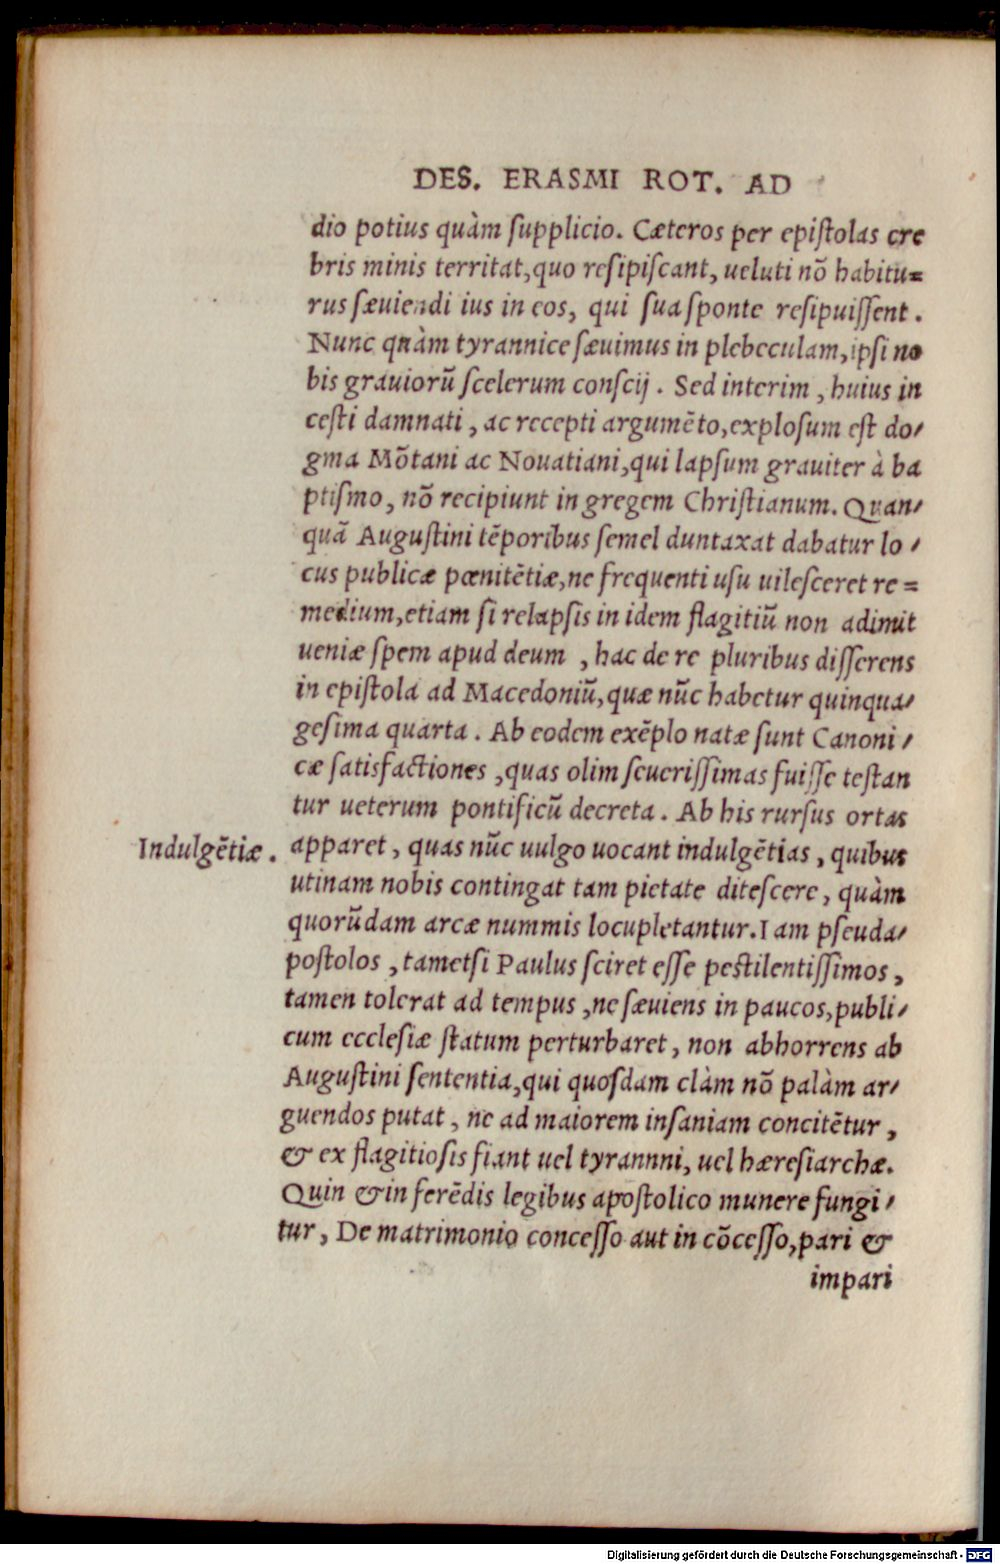 DES. ERASMI ROT. AD
dio potius quàm ſupplicio. Cæteros per epiſtolas cre
bris minis territat,quo reſipiſcant, ueluti nõ habitu=
rus ſæuiendi ius in eos, qui ſua ſponte reſipuiſſent.
Nunc quàm tyrannice ſæuimus in plebeculam,ipſi no
bis grauiorũ ſcelerum conſcij. Sed interim, huius in
ceſti damnati, ac recepti argumẽto,exploſum eſt do/
gma Mõtani ac Nouatiani,qui lapſum grauiter à ba
ptiſmo, nõ recipiunt in gregem Chriſtianum. Quan/
quã Auguſtini tẽporibus ſemel duntaxat dabatur lo/
cus publicæ pœnitẽtiæ,ne frequenti uſu uileſceret re=
medium,etiam ſi relapſis in idem flagitiũ non adimit
ueniæ ſpem apud deum, hac de re pluribus diſſerens
in epiſtola ad Macedoniũ,quæ nũc habetur quinqua/
geſima quarta. Ab eodem exẽplo natæ ſunt Canoni/
cæ ſatisfactiones,quas olim ſeueriſſimas fuiſſe teſtan
tur ueterum pontificũ decreta. Ab his rurſus ortas
Indulgẽtiæ.
apparet, quas nũc uulgo uocant indulgẽtias, quibus
utinam nobis contingat tam pietate diteſcere, quàm
quorũdam arcæ nummis locupletantur. I am pſeuda/
poſtolos, tametſi Paulus ſciret eſſe peſtilentiſſimos,
tamen tolerat ad tempus,ne ſæuiens in paucos,publi/
cum eccleſiæ ſtatum perturbaret, non abhorrens ab
Auguſtini ſententia,qui quoſdam clàm nõ palàm ar/
guendos putat, ne ad maiorem inſaniam concitẽtur,
& ex flagitioſis fiant uel tyrannni, uel hæreſiarchæ.
Quin & in ferẽdis legibus apoſtolico munere fungi/
tur, De matrimonio conceſſo aut in cõceſſo,pari &
impari
Digitalisierung gefördert durch die Deutsche Forschungsgemeinschaft - DFG